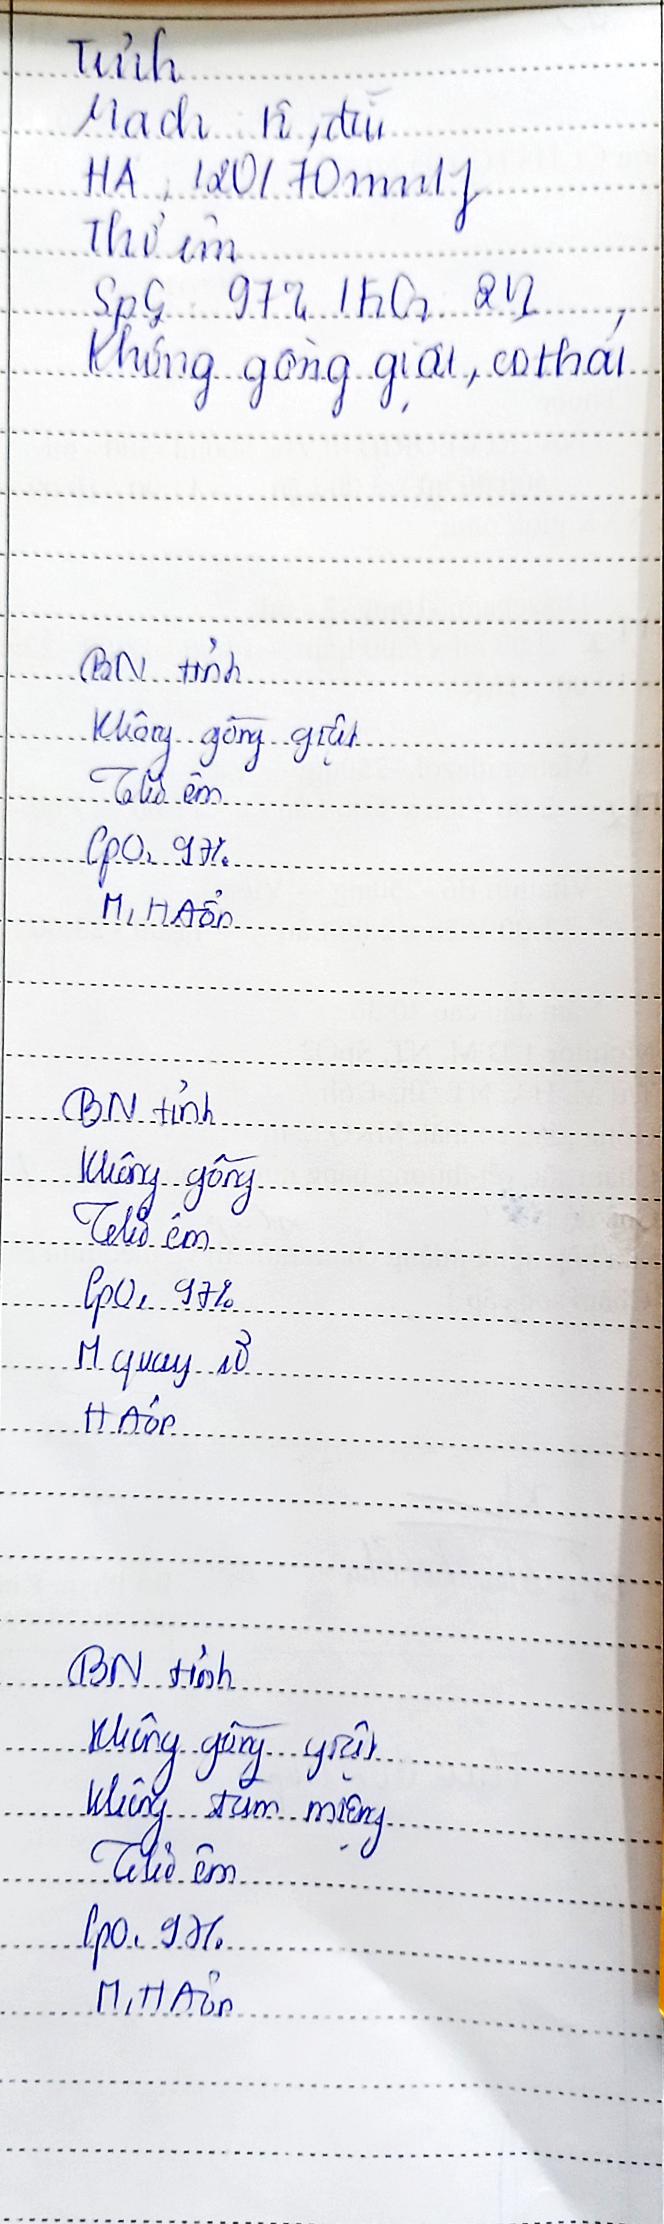 Tỉnh
Mạch rõ, đều
HA, 120/70mmHg
Thở êm
SpO2 97%
Không gồng giật, co thắt
BN tỉnh
Không gồng giật
Thở êm
SpO2 97%
M, HA ổn
BN tỉnh
Không gồng
Thở êm
SpO2 97%
M quay rõ
HA ổn
BN tỉnh
Không gồng giật
Không túm miệng
Thở êm
SpO2 97%
M, HA ổn